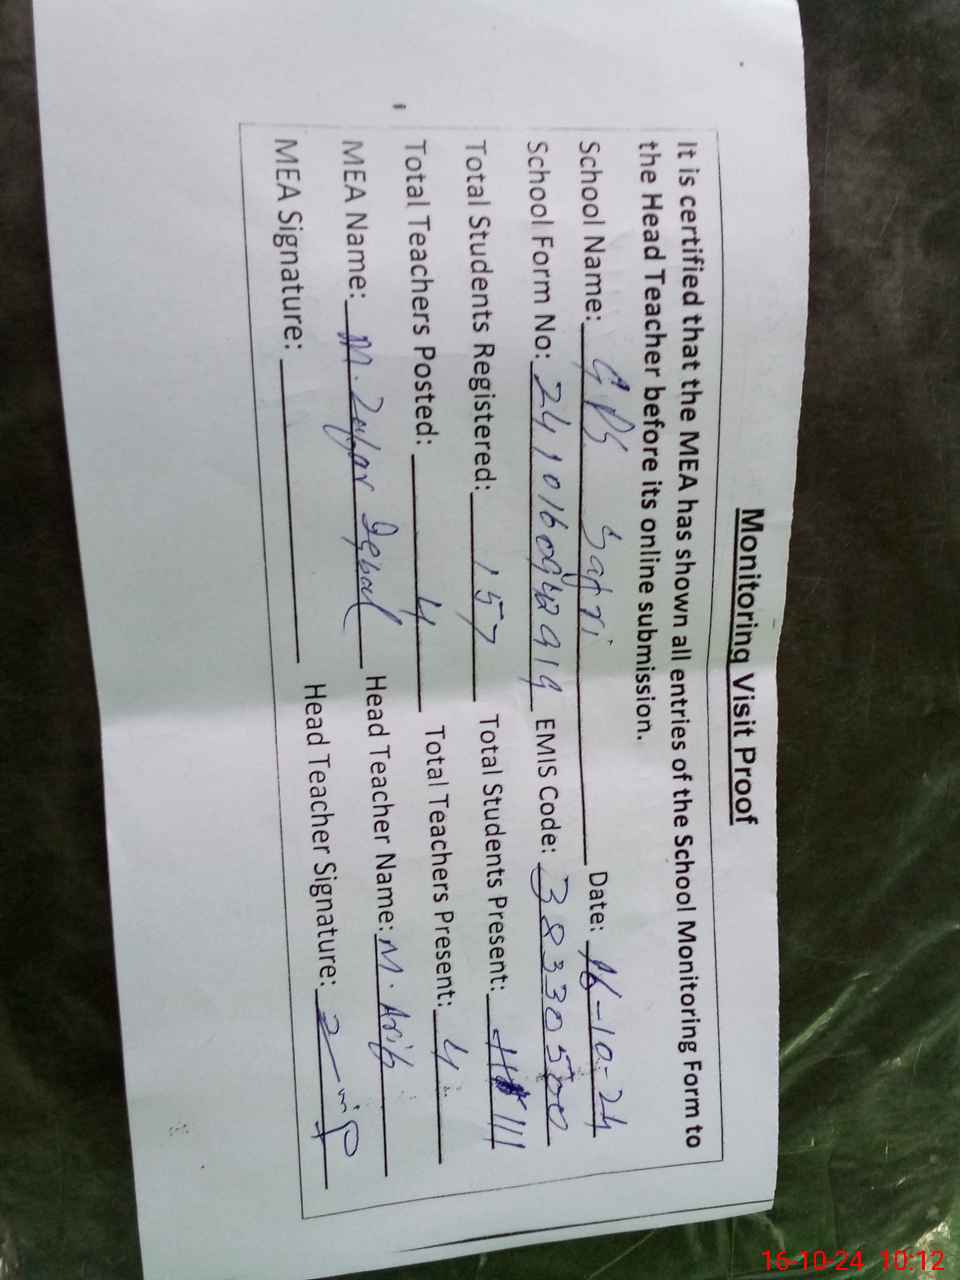 Monitoring Visit Proof
It is certified that the MEA has shown all entries of the School Monitoring Form to
the Head Teacher before its online submission.
School Name: GPS Date: 16-10-24
School Form No: EMIS Code: 38330500
Total Students Registered: 157 Total Students Present: 111
Total Teachers Posted: 4 Total Teachers Present: 4
MEA Name: M. Zafar Iqbal Head Teacher Name: M. Arif
MEA Signature: Head Teacher Signature:
16-10-24 10:12